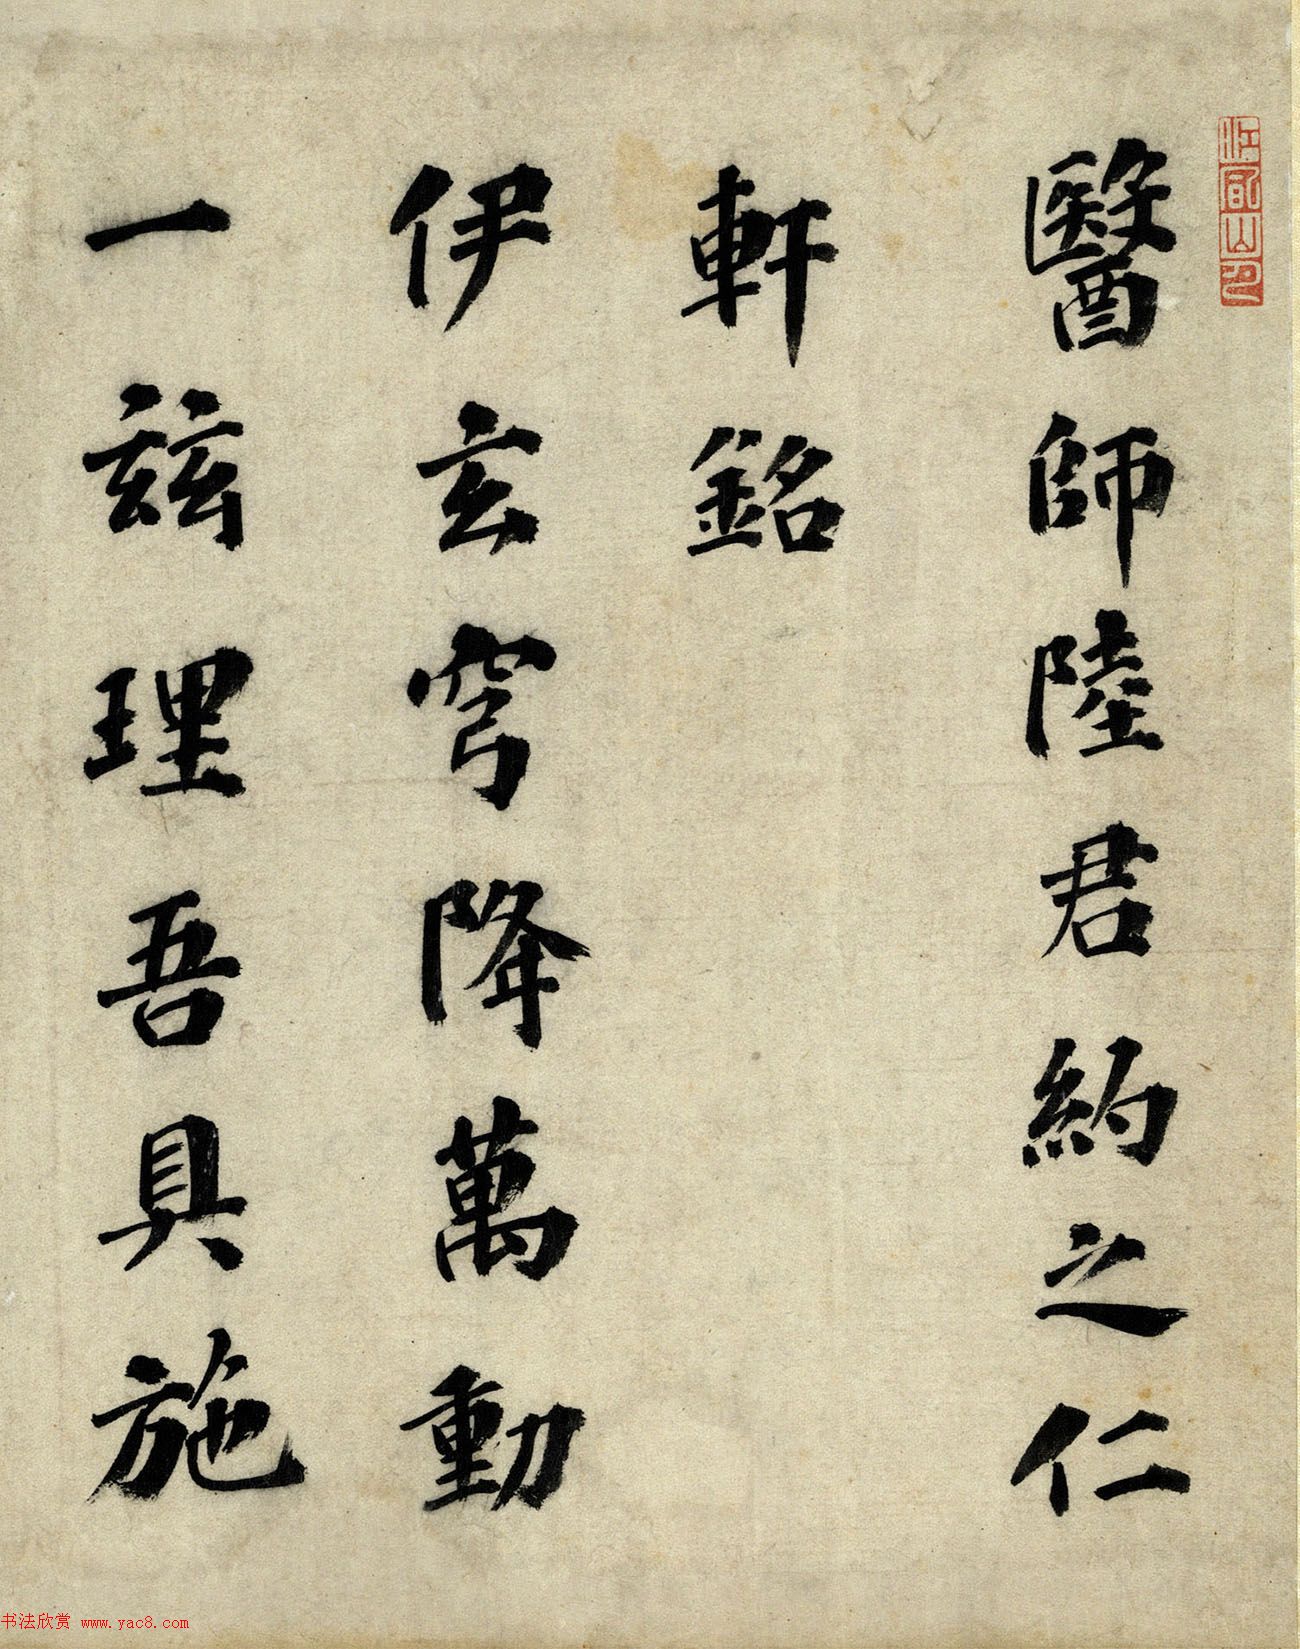 醫師陸君約之仁
軒銘
伊玄穹降萬動
一茲理吾具施
书法欣赏 www.yac8.com